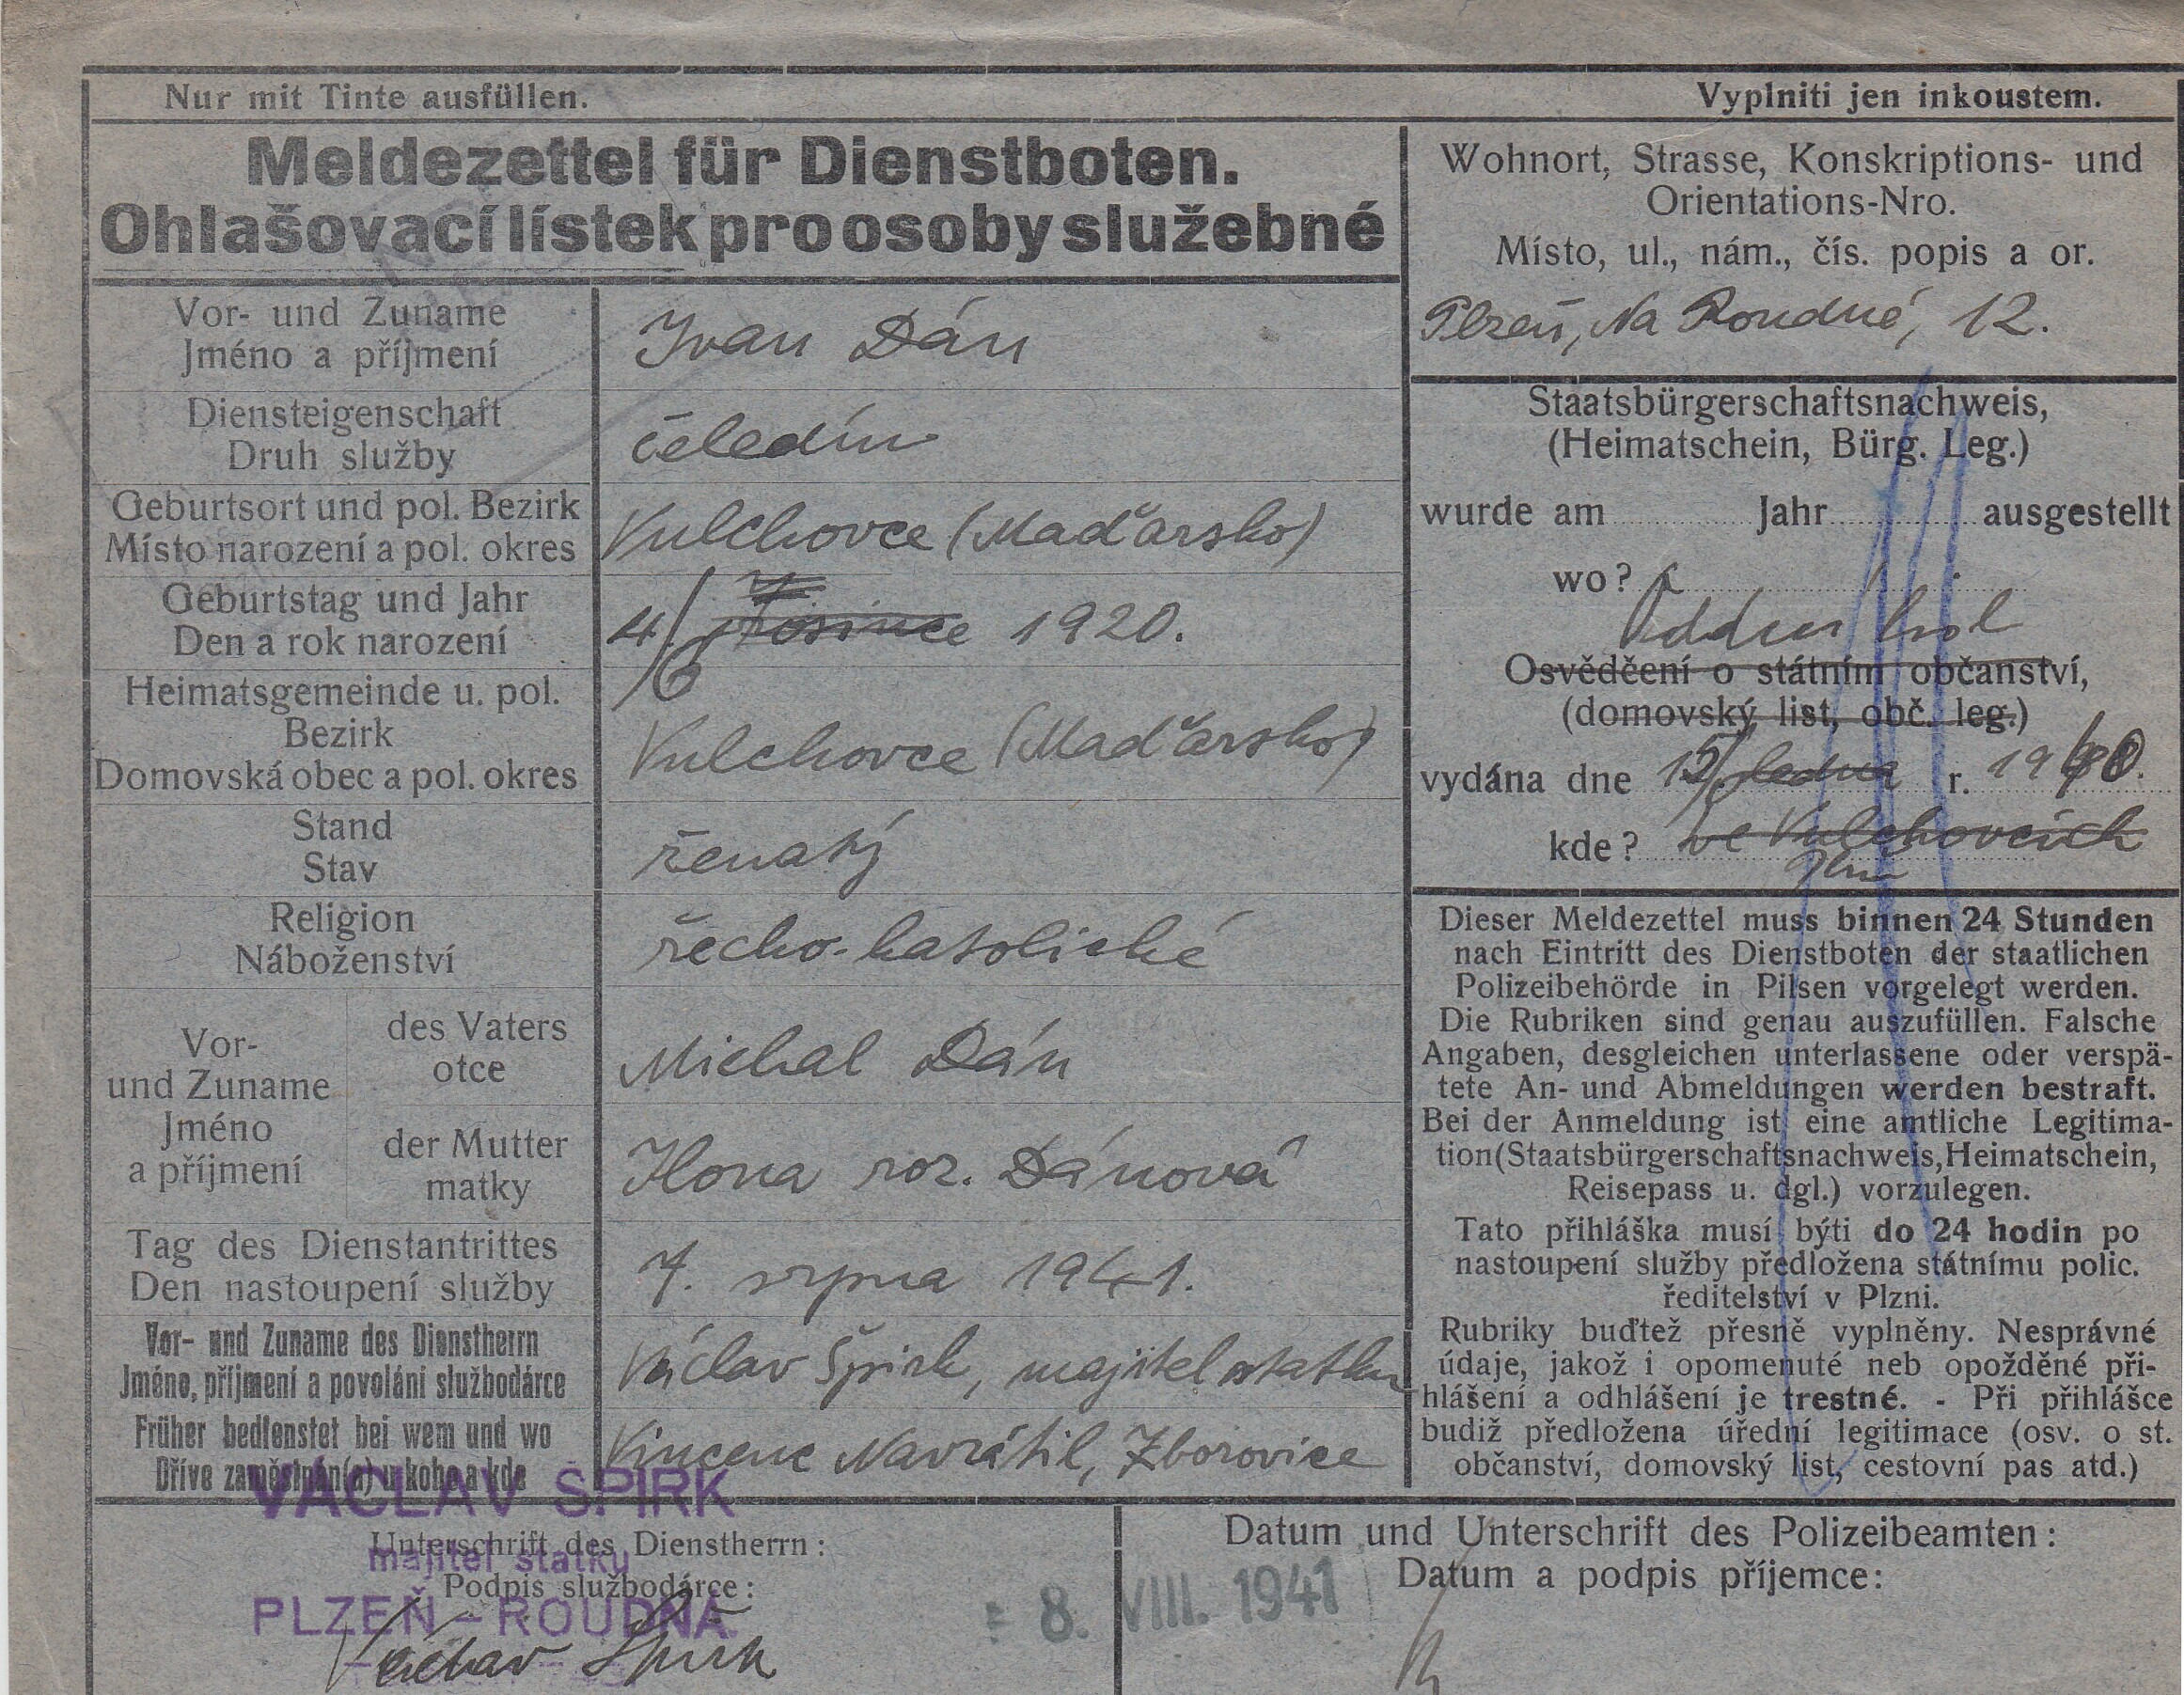 Nur mit Tinte ausfüllen.
Vyplniti jen inkoustem.
Meldezettel für Dienstboten.
Ohlašovací lístek pro osoby služebné
Vor- und Zuname
Jméno a příjmení
Ivan Dán
Diensteigenschaft
Druh služby
čeledín
Geburtsort und pol. Bezirk
Místo narození a pol. okres
Vulchovce (Maďarsko)
Geburtstag und Jahr
Den a rok narození
4/6 prosince 1920.
Heimatsgemeinde u. pol.
Bezirk
Domovská obec a pol. okres
Vulchovce (Maďarsko)
Stand
Stav
ženatý
Religion
Náboženství
řecko-katolické
Vor-
und Zuname
Jméno
a příjmení
des Vaters
otce
Michal Dán
der Mutter
matky
Ilona roz. Dánová
Tag des Dienstantrittes
Den nastoupení služby
7. srpna 1941.
Vor- und Zuname des Dienstherrn
Jméno, příjmení a povolání službodárce
Václav Špirk, majitel statku
Früher bedienstet bei wem und wo
Dříve zaměstnán(a) u koho a kde
Vincenc Navrátil, Zborovice
Wohnort, Strasse, Konskriptions- und
Orientations-Nro.
Místo, ul., nám., čís. popis a or.
Plzeň, Na Roudné, 12.
Staatsbürgerschaftsnachweis,
(Heimatschein, Bürg. Leg.)
wurde am Jahr ausgestellt
wo?
Osvědčení o státním občanství,
(domovský list, obč. leg.)
vydána dne 15/ ledna r. 19
kde? ve Vulchovcích
Dieser Meldezettel muss binnen 24 Stunden
nach Eintritt des Dienstboten der staatlichen
Polizeibehörde in Pilsen vorgelegt werden.
Die Rubriken sind genau auszufüllen. Falsche
Angaben, desgleichen unterlassene oder verspä-
tete An- und Abmeldungen werden bestraft.
Bei der Anmeldung ist eine amtliche Legitima-
tion (Staatsbürgerschaftsnachweis, Heimatschein,
Reisepass u. dgl.) vorzulegen.
Tato přihláška musí býti do 24 hodin po
nastoupení služby předložena státnímu polic.
ředitelství v Plzni.
Rubriky buďtež přesně vyplněny. Nesprávné
údaje, jakož i opomenuté neb opožděné při-
hlášení a odhlášení je trestné. - Při přihlášce
budiž předložena úřední legitimace (osv. o st.
občanství, domovský list, cestovní pas atd.)
VÁCLAV ŠPIRK
majitel statku
PLZEŇ - ROUDNÁ
Unterschrift des Dienstherrn:
Podpis službodárce:
Václav Špirk
Datum und Unterschrift des Polizeibeamten:
Datum a podpis příjemce:
- 8. VIII. 1941